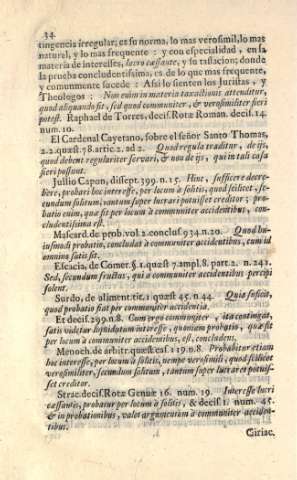 34
tingencia irregular; es su norma, lo mas verosimil, lo mas
natural, y lo mas frequente: y con especialidad, en la
materia de interesses, lucro cæssante, y su tassacion; donde
la prueba concludentissima, es de lo que mas frequente,
y comunmente sucede: Assi lo sienten los Juristas, y
Theologos: Nam enim in materia taxationis attenditur,
quod aliquando fit, sed quod communiter, & verosimiliter fieri
potest. Raphael de Torres, decis. Rotæ Roman. decis. 14.
num. 10.
El Cardenal Cayetano, sobre el señor Santo Thomas,
2. 2. quæst. 78. artic. 2. ad 2. Quod regula traditur, de ijs,
quod debent regulariter servari, & non de ijs, qui in tali casu
fieri possunt.
Jullio Capon, dissept. 399. n. 15. Hinc, sufficere decre-
vere, probari hoc interesse, per locum à solitis, quod scilicet, se-
cundum solitum, tantum super lucrari potuisset creditor; pro-
batio enim, quæ fit per locum à communiter accidentibus, con-
cludentissima est.
Mascard. de prob. vol. 2. conclus. 934. n. 20. Quod hu-
iusmodi probatio, concludat à communiter accidentibus, cum id
annina satis sit.
Escacia, de Comer. §. 1. quæst. 7. ampl. 8. part. 2. n. 241.
Sed, secundum fructus, qui à communiter accidentibus percipi
solent.
Surdo, de aliment. tit. 1. quæst. 45. n. 44. Quia suficit,
quod probatio fiat per communiter accidentia.
Et decis. 299. n. 8. Cum ergo communiter, ita contingat,
satis videtur liquidatum interesse, quoniam probatio, quæ fit
per locum à communiter accidentibus, est, concludens.
Menoch. de arbitr. quæst. cas. 119. n. 8. Probabitur etiam
hoc interesse, per locum à solitis, nempe verosimili, quod scilicet
verosimiliter, secundum solitum, tantum super lucrari potuis-
set creditor.
Strac. decis. Rotæ Genuæ 16. num. 19. Interesse lucri
cæssantis, probatur per locum à solitis, & decis. 1. num. 45.
& in probationibus, valet argumentum à communiter acciden-
tibus.
Ciriac.